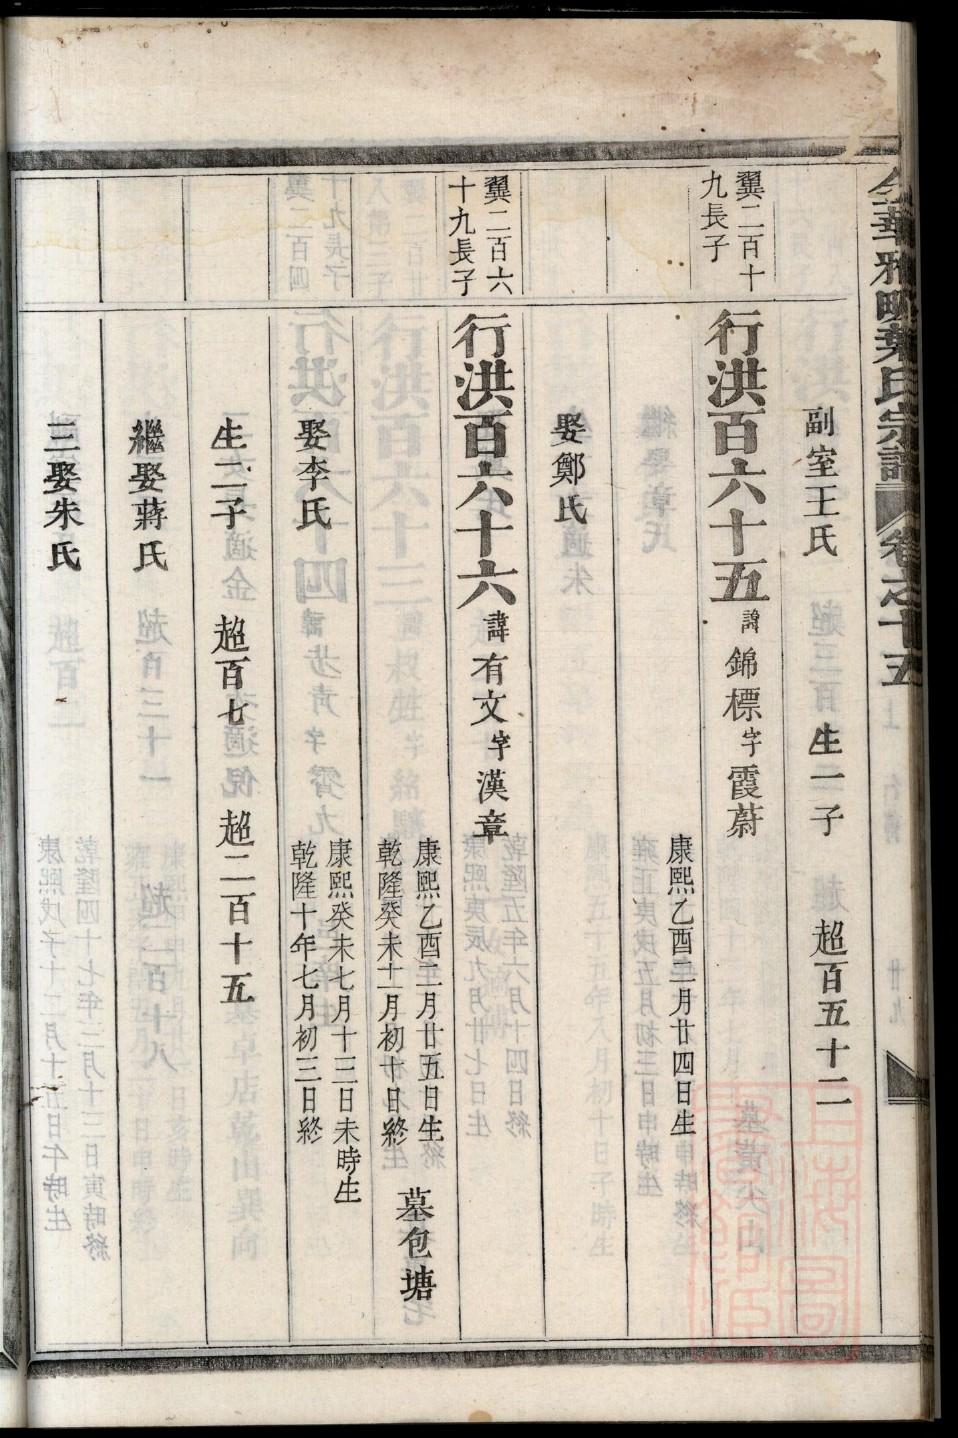 金華雅畈葉氏宗譜 卷之十五
副室王氏 生一子 超百五十二
翼二百十
九長子
行洪百六十五 諱錦標字霞蔚
康熙乙酉二月廿四日生
娶鄭氏
翼二百六
十九長子
行洪百六十六 諱有文字漢章
康熙乙酉二月廿五日生
乾隆癸未十一月初十日終
墓包塘
娶李氏
康熙癸未七月十三日未時生
乾隆十年七月初三日終
生二子 超百七 超二百十五
繼娶蔣氏
三娶朱氏